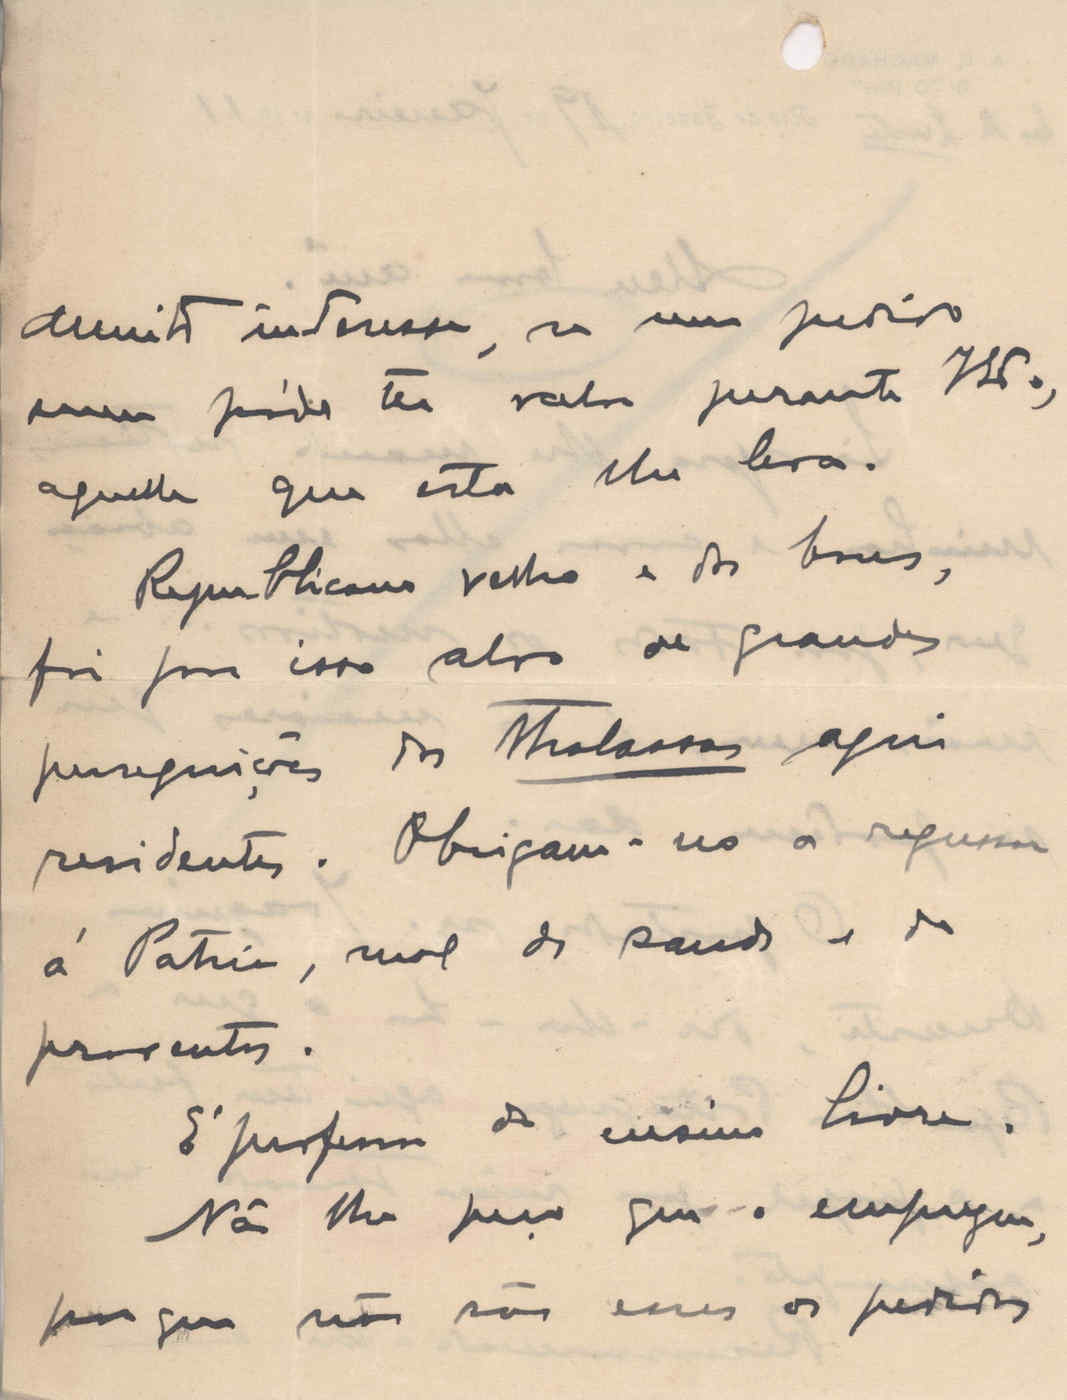 muito interesse, se um pedido
meu póde ter valor perante
aquelle que esta lhe leva.
Republicano velho e dos bons,
foi por isso alvo de grandes
perseguições dos Thalassas aqui
residentes. Obrigam-no a regressar
á Patria, mal de saude e de
proventos.
E' professor de ensino livre.
Não lhe peço que o empregue,
porque não são esses os pedidos